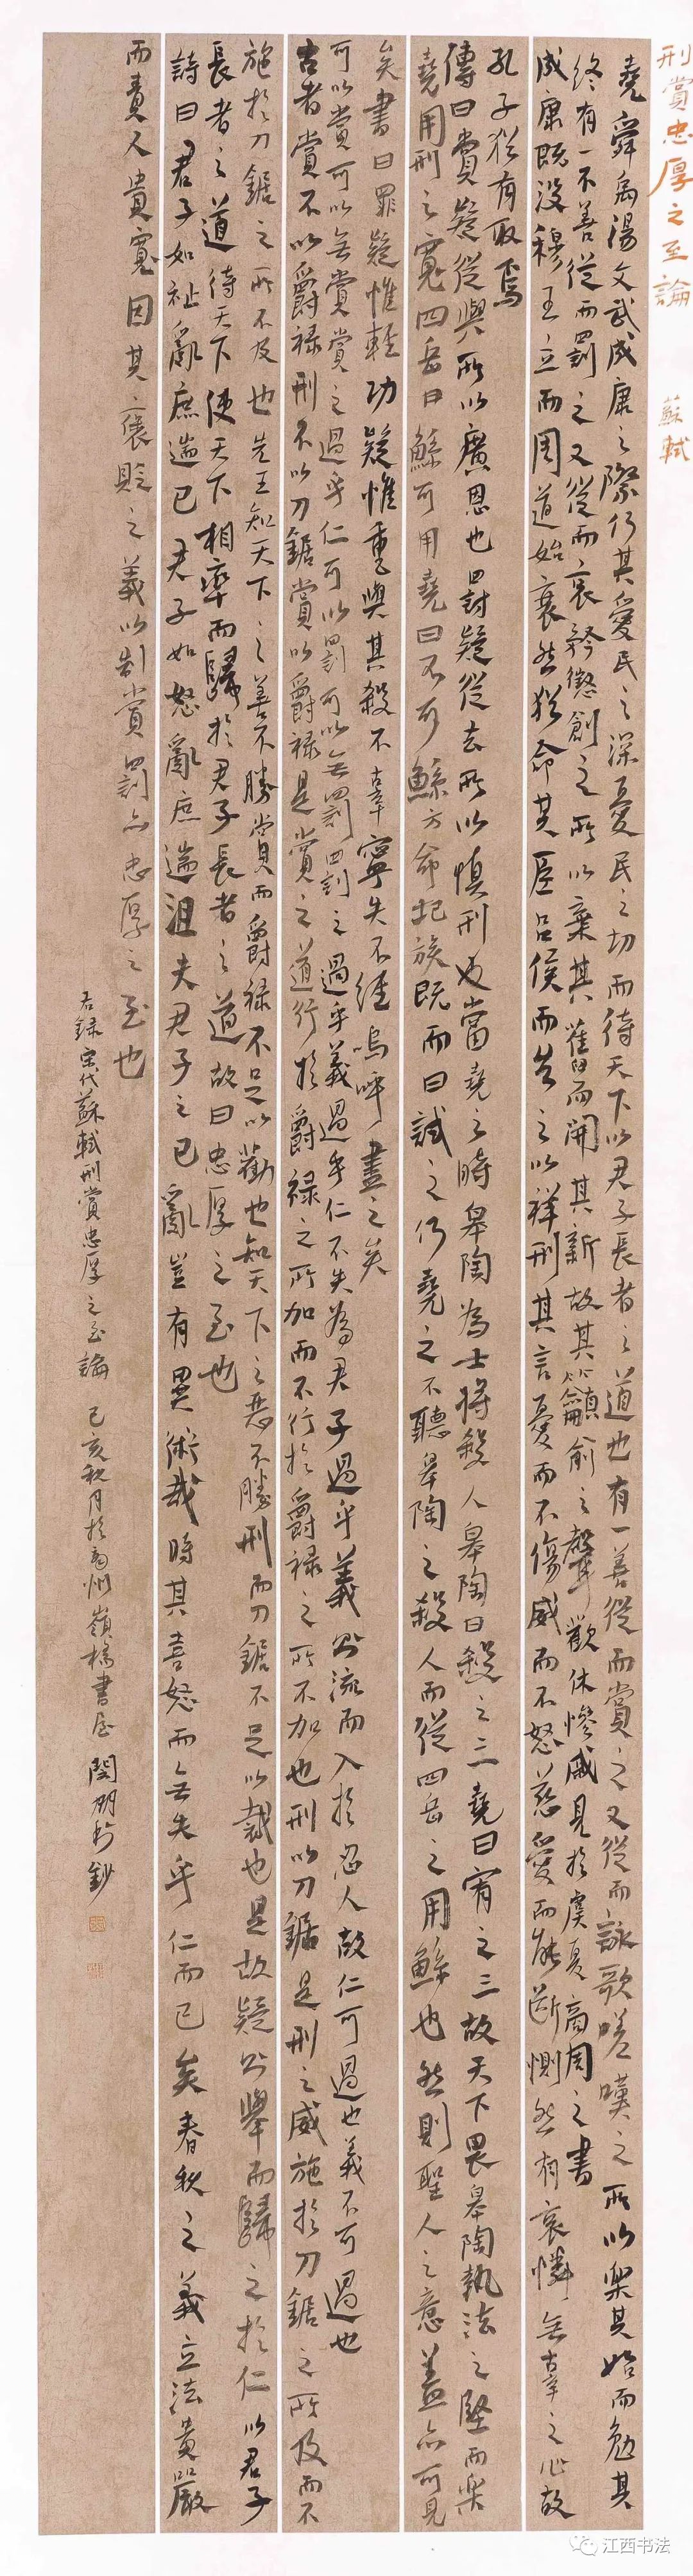 刑賞忠厚之至論 蘇軾
堯舜禹湯文武成康之際何其愛民之深憂民之切而待天下以君子長者之道也有一善從而賞之又從而詠歌嗟嘆之所以樂其始而勉其
終有一不善從而罰之又從而哀矜懲創之所以棄其舊而開其新故其籲俞之聲歡休慘戚見於虞夏商周之書
成康既沒穆王立而周道始衰然猶命其臣呂侯而告之以祥刑其言憂而不傷威而不怒慈愛而能斷惻然有哀憐無辜之心故
孔子猶有取焉
傳曰賞疑從與所以廣恩也罰疑從去所以慎刑也當堯之時皋陶為士將殺人皋陶曰殺之三堯曰宥之三故天下畏皋陶執法之堅而樂
堯用刑之寬四岳曰鯀可用堯曰不可鯀方命圮族既而曰試之何堯之不聽皋陶之殺人而從四岳之用鯀也然則聖人之意蓋亦可見
矣書曰罪疑惟輕功疑惟重與其殺不辜寧失不經嗚呼盡之矣
可以賞可以無賞賞之過乎仁可以罰可以無罰罰之過乎義過乎仁不失為君子過乎義則流而入於忍人故仁可過也義不可過也
古者賞不以爵祿刑不以刀鋸賞以爵祿是賞之道行於爵祿之所加而不行於爵祿之所不加也刑以刀鋸是刑之威施於刀鋸之所及而不
施於刀鋸之所不及也先王知天下之善不勝賞而爵祿不足以勸也知天下之惡不勝刑而刀鋸不足以裁也是故疑則舉而歸之於仁以君子
長者之道待天下使天下相率而歸於君子長者之道故曰忠厚之至也
詩曰君子如祉亂庶遄已君子如怒亂庶遄沮夫君子之已亂豈有異術哉時其喜怒而無失乎仁而已矣春秋之義立法貴嚴
而責人貴寬因其褒貶之義以制賞罰亦忠厚之至也
右錄宋代蘇軾刑賞忠厚之至論 己亥秋月於 州嶺 書屋
江西书法